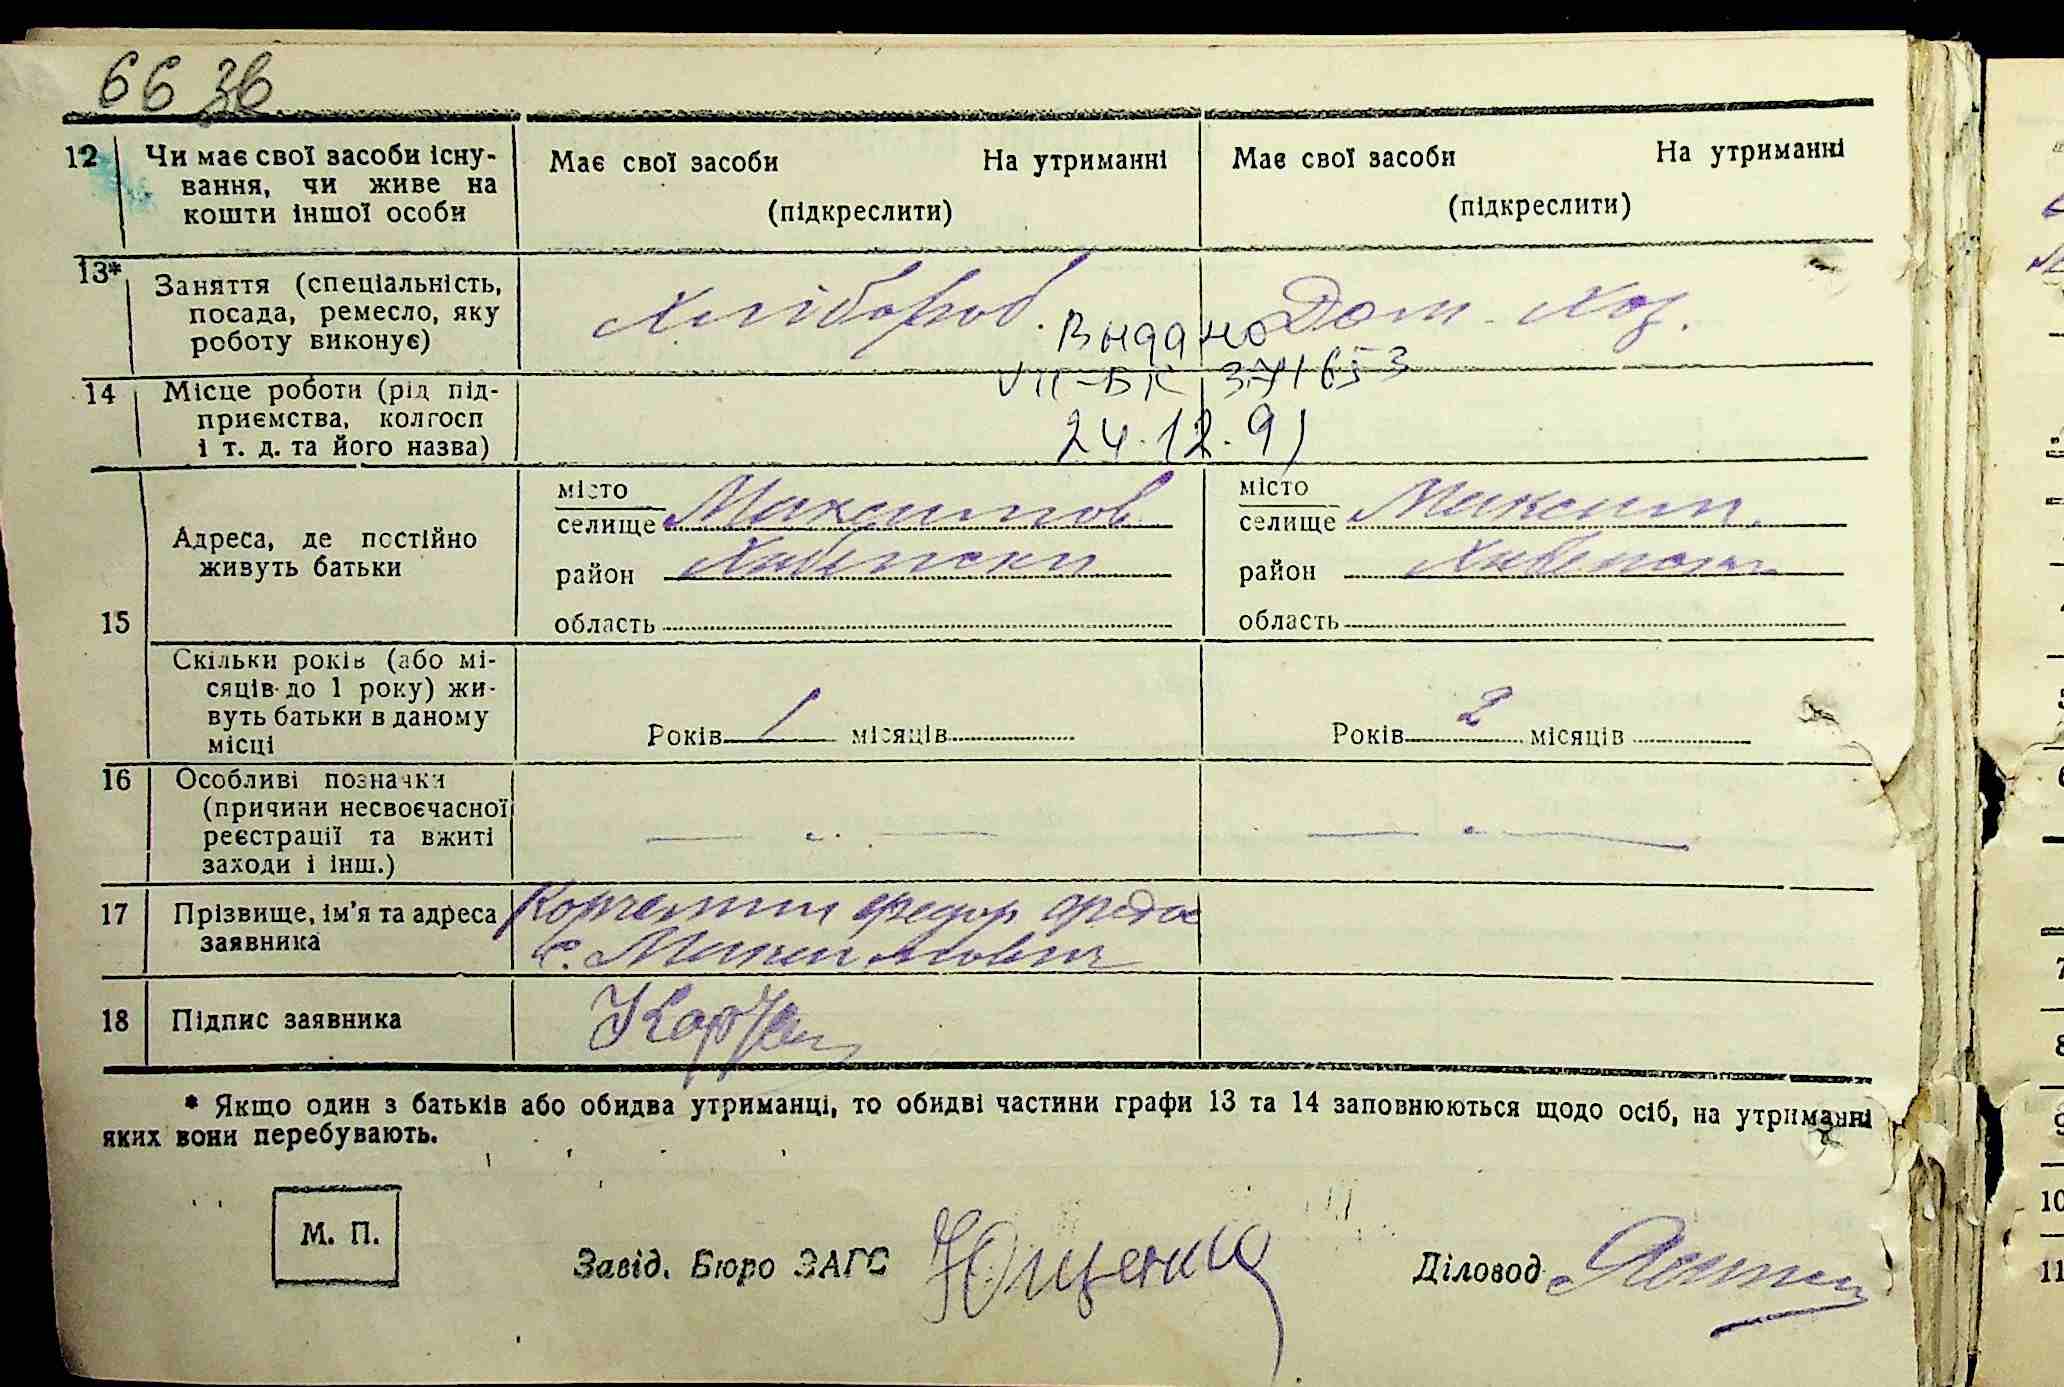 66 зв
12 Чи має свої засоби існу-
вання, чи живе на
кошти іншої особи
Має свої засоби На утриманні
(підкреслити)
Має свої засоби На утриманні
(підкреслити)
13* Заняття (спеціальність,
посада, ремесло, яку
роботу виконує)
Хлібороб.
Дом. Хоз.
Видано
VII-БК 371653
24.12.91
14 Місце роботи (рід під-
приємства, колгосп
і т. д. та його назва)
15
Адреса, де постійно
живуть батьки
місто
селище Максимов
район
область
місто
селище Максим.
район
область
Скільки років (або мі-
сяців до 1 року) жи-
вуть батьки в даному
місці
Років 1 місяців
Років 2 місяців
16 Особливі позначки
(причини несвоєчасної
реєстрації та вжиті
заходи і інш.)
17 Прізвище, ім'я та адреса
заявника
Федор
с.
18 Підпис заявника
* Якщо один з батьків або обидва утриманці, то обидві частини графи 13 та 14 заповнюються щодо осіб, на утриманні
яких вони перебувають.
М. П.
Завід. Бюро ЗАГС
Діловод